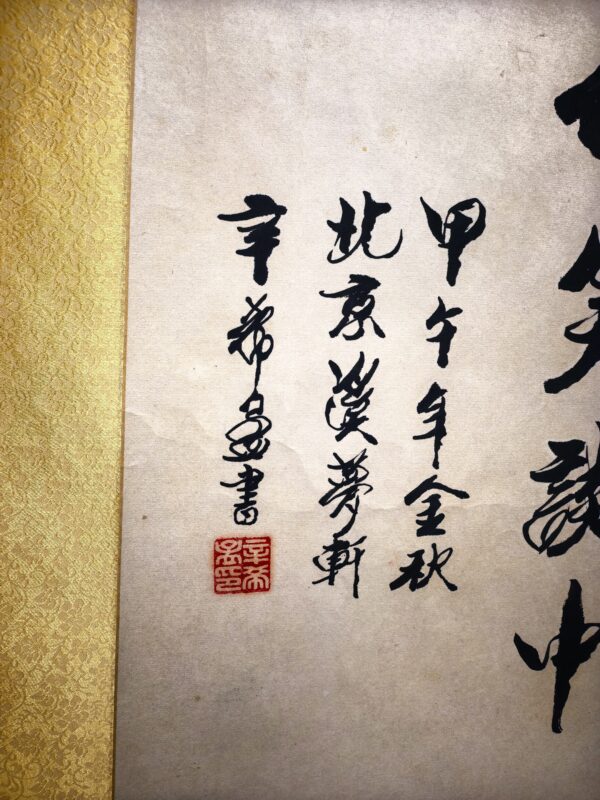 笑談中
甲午年金秋
北京漢夢軒
辛希孟書
辛希孟印